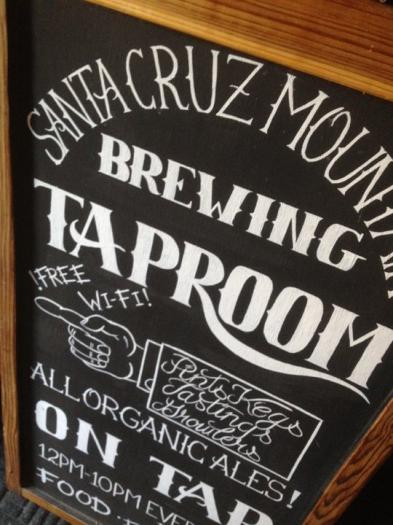 SANTA CRUZ MOUNTA
BREWING
TAPROOM
¡FREE
WI-FI!
Pints Kegs
Tastings
Growlers
ALL ORGANIC ALES!
ON TAP
12PM-10PM EVER
FOOD